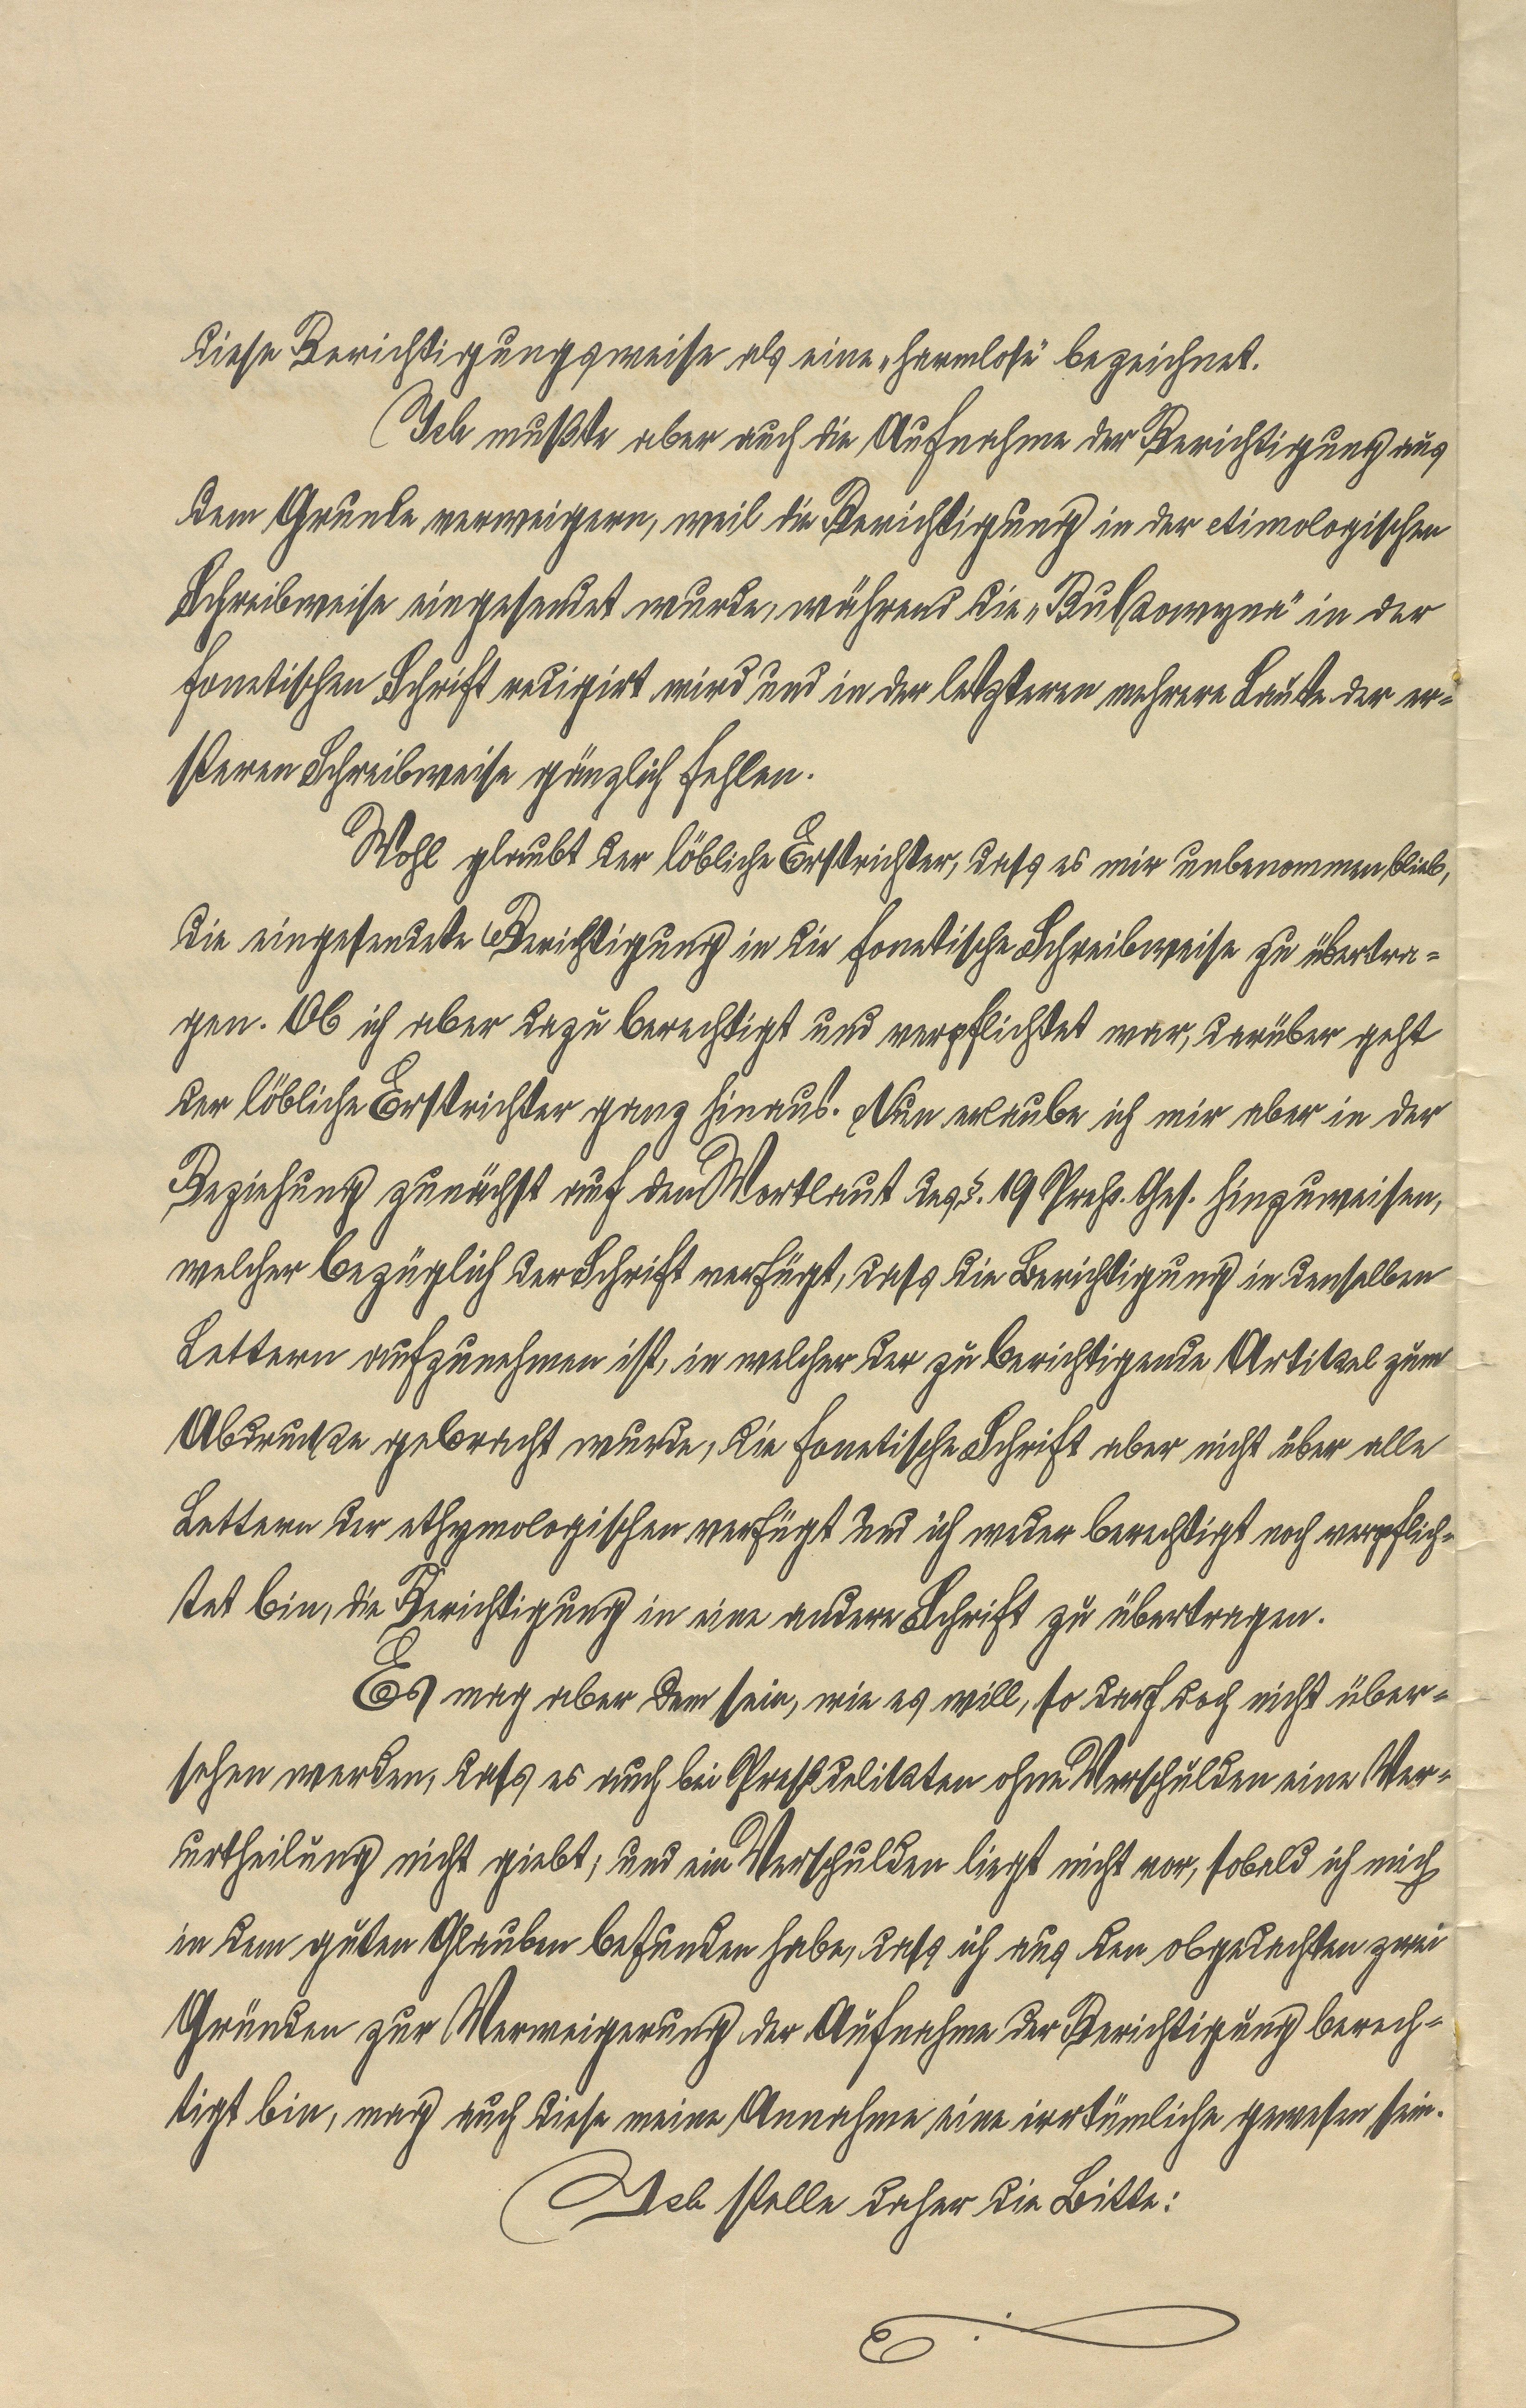 diese Berichtigungsweise als eine „harmlose" bezeichnet.
Ich mußte aber auch die Aufnahme der Berichtigung aus
dem Grunde verweigern, weil die Berichtigung in der etimologischen
Schreibweise eingesendet wurde, während die „Bukowyna" in der
fonetischen Schrift redigirt wird und in der letzteren mehrere Laute der er-
steren Schreibweise gänzlich fehlen.
Wohl glaubt der löbliche Erstrichter, dass es mir unbenommen blieb,
die eingesendete Berichtigung in die fonetische Schreibweise zu übertra-
gen. Ob ich aber dazu berechtigt und verpflichtet war, darüber geht
der löbliche Erstrichter ganz hinaus. Nun erlaube ich mir aber in der
Beziehung zunächst auf den Wortlaut des §. 19 Preß. Ges. hinzuweisen,
welcher bezüglich der Schrift verfügt, dass die Berichtigung in denselben
Lettern aufzunehmen ist, in welcher der zu berichtigende Artikel zum
Abdrucke gebracht wurde, die fonetische Schrift aber nicht über alle
Lettern der ethymologischen verfügt und ich weder berechtigt noch verpflich-
tet bin, die Berichtigung in eine andere Schrift zu übertragen.
Es mag aber dem sein, wie es will, so darf doch nicht über-
sehen werden, dass es auch bei Preßdelikten ohne Verschulden eine Ver-
urtheilung nicht giebt; und ein Verschulden liegt nicht vor, sobald ich mich
in dem guten Glauben befunden habe, dass ich aus den obgedachten zwei
Gründen zur Verweigerung der Aufnahme der Berichtigung berech-
tigt bin, mag auch diese meine Annahme eine irrtümliche gewesen sein.
Ich stelle daher die Bitte: